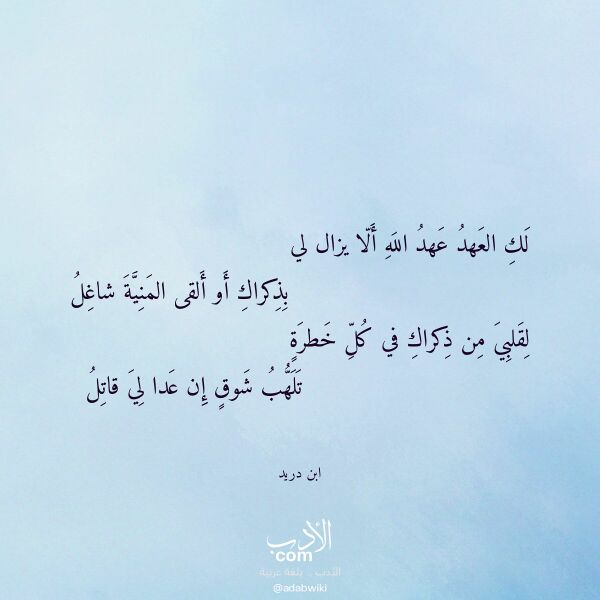 لَكِ العَهدُ عَهدُ اللَهِ أَلّا يزال لي
بِذِكراكِ أَو أَلقى المَنِيَّةَ شاغِلُ
لِقَلبِيَ مِن ذِكراكِ في كُلِّ خَطرَةٍ
تَلَهُّبُ شَوقٍ إِن عَدا لِيَ قاتِلُ
ابن دريد
الأدب
com
الأدب .. بلغة عربية
@adabwiki